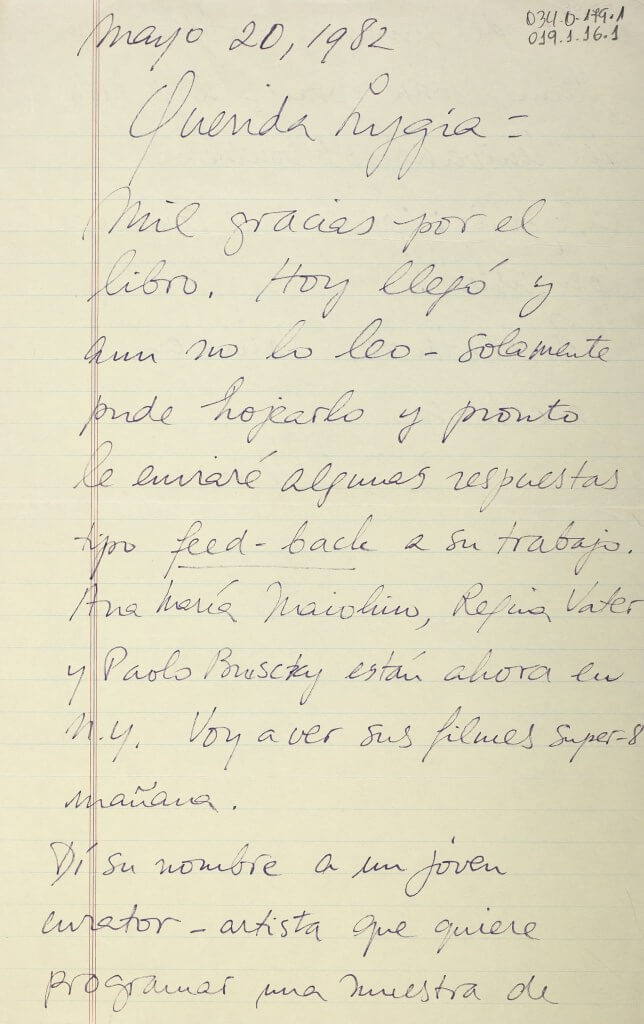 034.0-179.1
019.1.16.1
Mayo 20, 1982
Querida Lygia =
Mil gracias por el
libro. Hoy llegó y
aun no lo leo - solamente
pude hojearlo y pronto
le enviaré algunas respuestas
tipo feed-back a su trabajo.
Ana María Maiolino, Regina Vater
y Paolo Bruscky están ahora en
N.Y. Voy a ver sus filmes super-8
mañana.
Dí su nombre a un joven
curator - artista que quiere
programar una muestra de